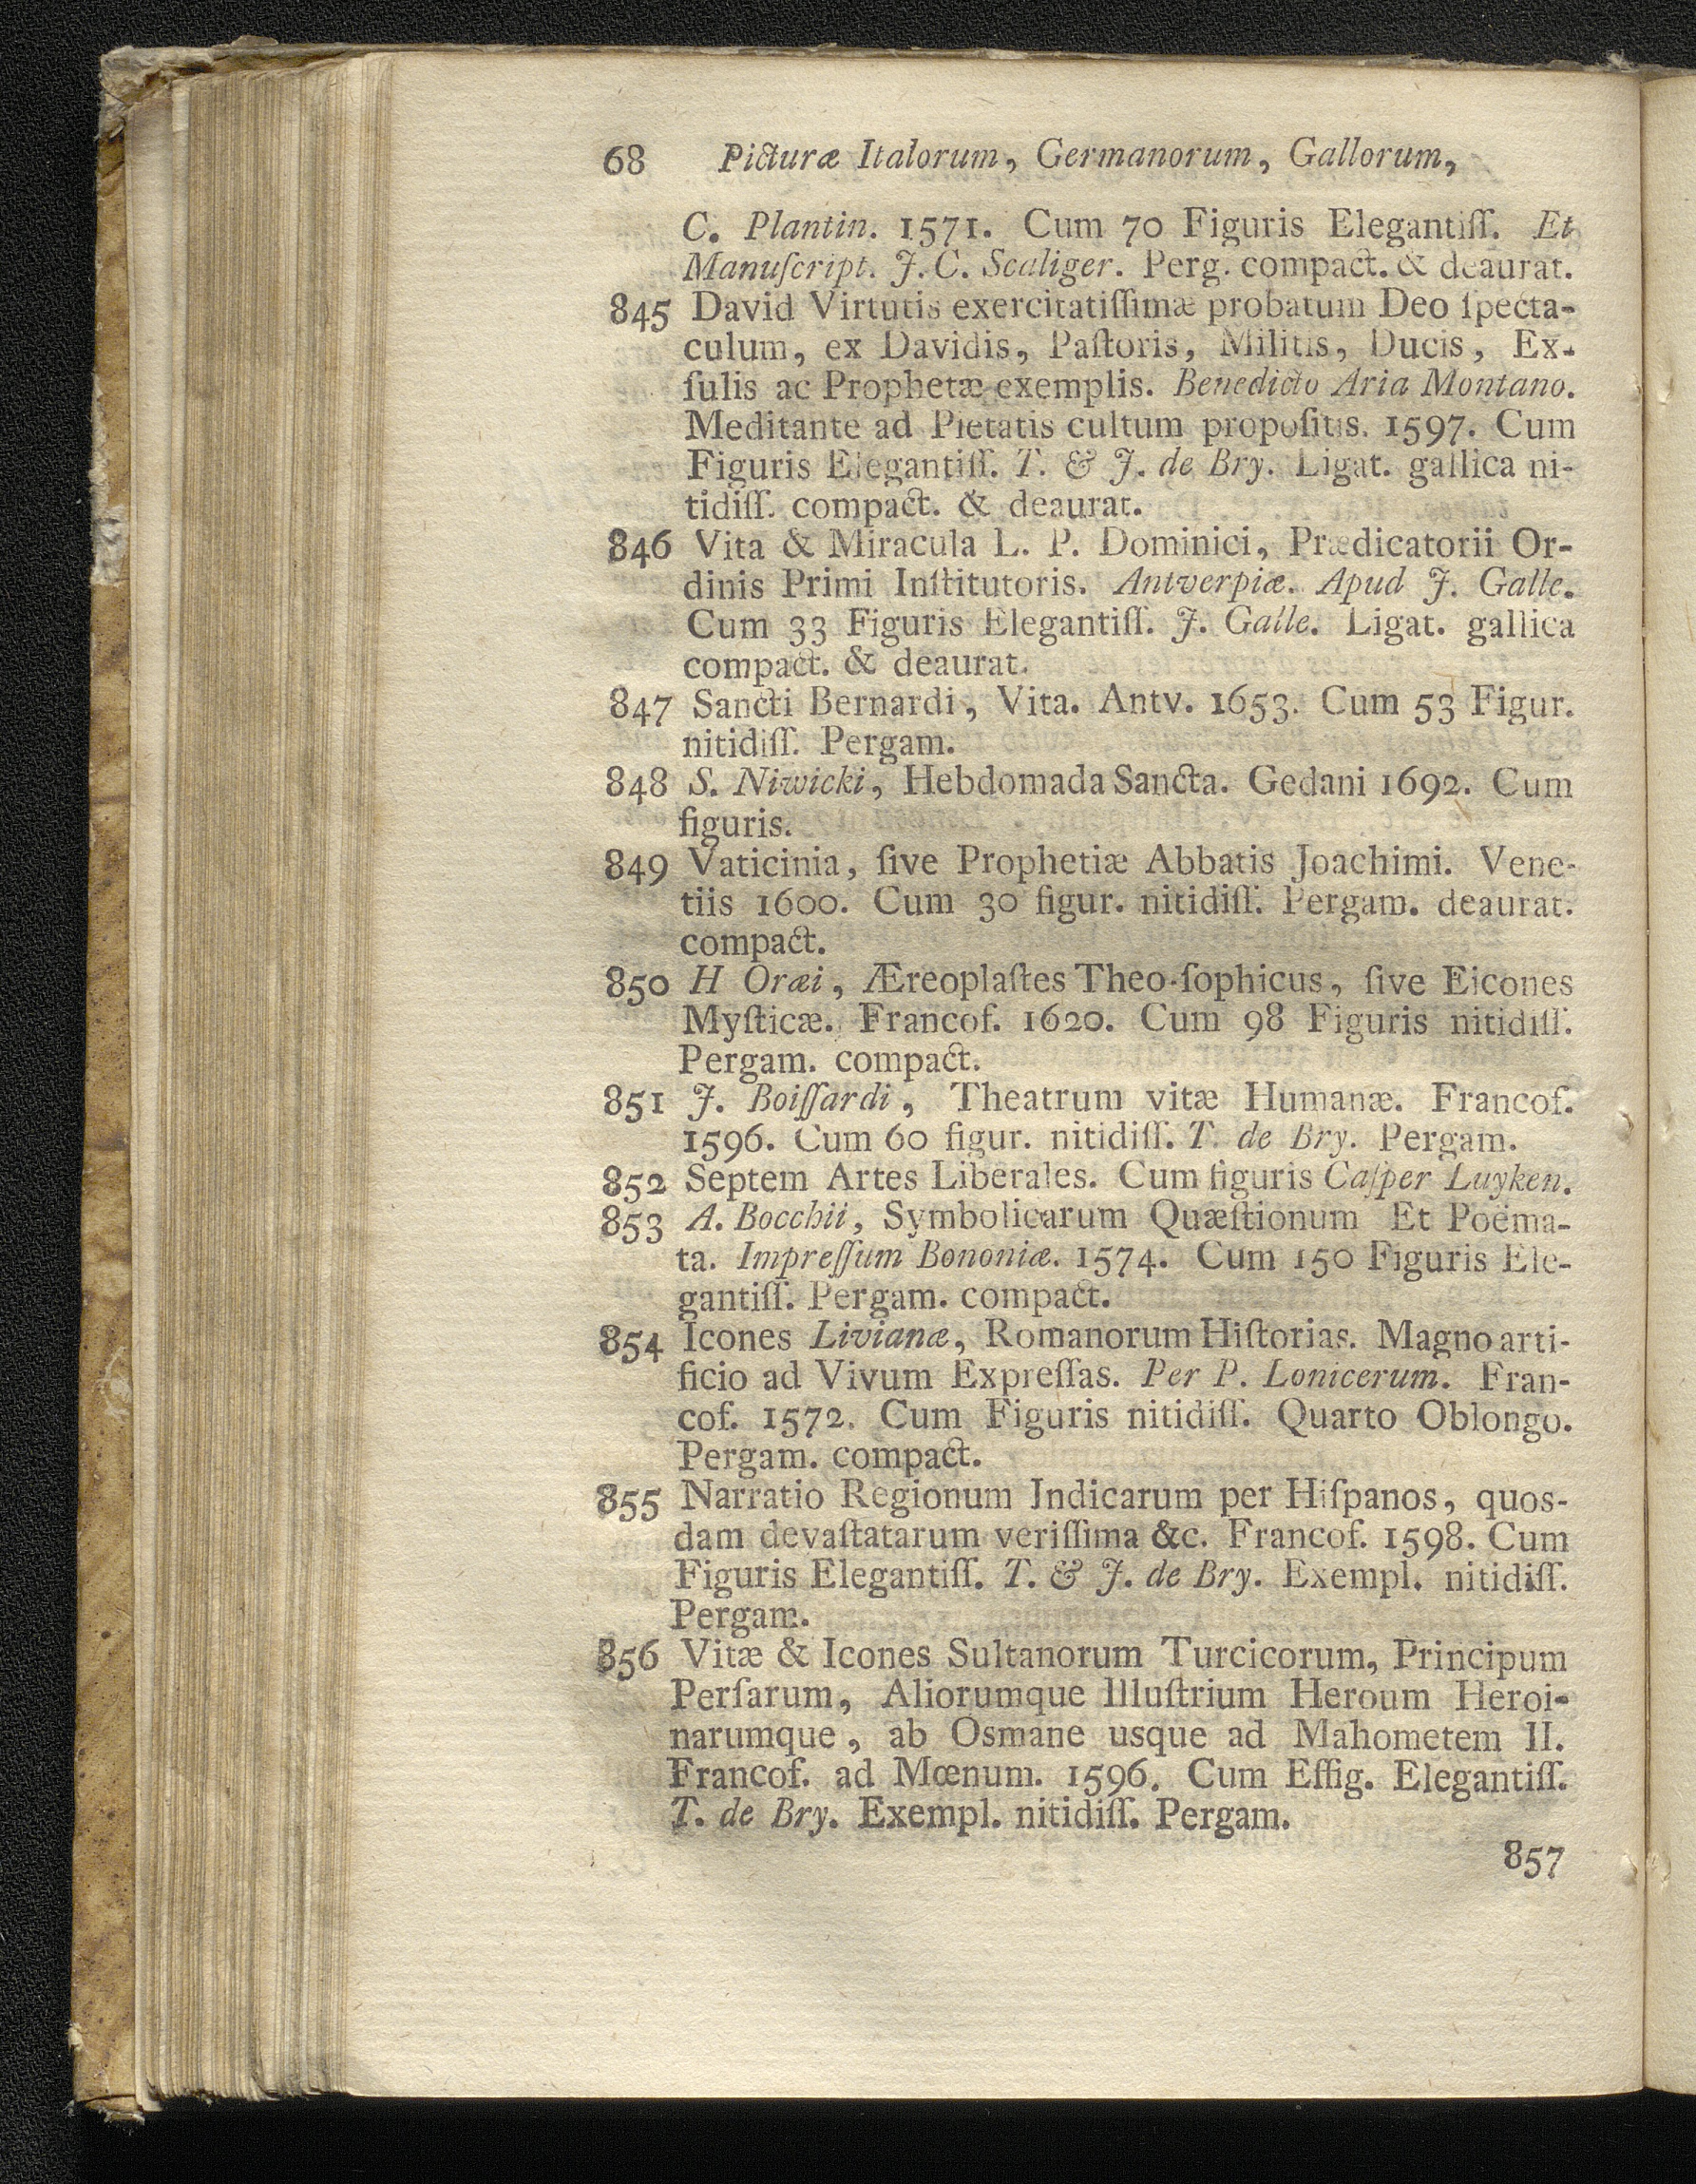 68 Picturæ Italorum, Germanorum, Gallorum,
C. Plantin. 1571. Cum 70 Figuris Elegantiſſ. Et
Manuſcript. J. C. Scaliger. Perg. compact. & deaurat.
845 David Virtutis exercitatiſſimæ probatum Deo ſpecta-
culum, ex Davidis, Paſtoris, Militis, Ducis, Ex-
ſulis ac Prophetæ exemplis. Benedicto Aria Montano.
Meditante ad Pietatis cultum propoſitis. 1597. Cum
Figuris Elegantiſſ. T. & J. de Bry. Ligat. gallica ni-
tidiſſ. compact. & deaurat.
846 Vita & Miracula L. P. Dominici, Prædicatorii Or-
dinis Primi Inſtitutoris. Antverpiæ. Apud J. Galle.
Cum 33 Figuris Elegantiſſ. J. Galle. Ligat. gallica
compact. & deaurat.
847 Sancti Bernardi, Vita. Antv. 1653. Cum 53 Figur.
nitidiſſ. Pergam.
848 S. Niwicki, Hebdomada Sancta. Gedani 1692. Cum
figuris.
849 Vaticinia, ſive Prophetiæ Abbatis Joachimi. Vene-
tiis 1600. Cum 30 figur. nitidiſſ. Pergam. deaurat.
compact.
850 H Oræi, Æreoplaſtes Theo-ſophicus, ſive Eicones
Myſticæ. Francof. 1620. Cum 98 Figuris nitidiſſ.
Pergam. compact.
851 J. Boiſſardi, Theatrum vitæ Humanæ. Francof.
1596. Cum 60 figur. nitidiſſ. T. de Bry. Pergam.
852 Septem Artes Liberales. Cum figuris Caſper Luyken.
853 A. Bocchii, Symbolicarum Quæſtionum Et Poëma-
ta. Impreſſum Bononiæ. 1574. Cum 150 Figuris Ele-
gantiſſ. Pergam. compact.
854 Icones Livianæ, Romanorum Hiſtorias. Magno arti-
ficio ad Vivum Expreſſas. Per P. Lonicerum. Fran-
cof. 1572. Cum Figuris nitidiſſ. Quarto Oblongo.
Pergam. compact.
855 Narratio Regionum Indicarum per Hiſpanos, quos-
dam devaſtatarum veriſſima &c. Francof. 1598. Cum
Figuris Elegantiſſ. T. & J. de Bry. Exempl. nitidiſſ.
Pergam.
856 Vitæ & Icones Sultanorum Turcicorum, Principum
Perſarum, Aliorumque Illuſtrium Heroum Heroi-
narumque, ab Osmane usque ad Mahometem II.
Francof. ad Mœnum. 1596. Cum Effig. Elegantiſſ.
T. de Bry. Exempl. nitidiſſ. Pergam.
857